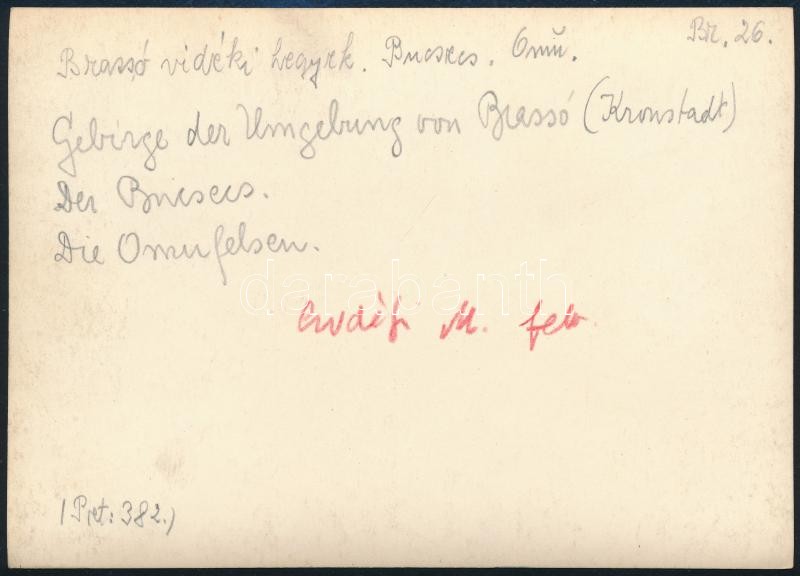 Br. 26.
Brassó vidéki hegyek. Bucsecs. Omŭ.
Gebirge der Umgebung von Brassó (Kronstadt)
Der Bucsecs.
Die Omufelsen.
darabanth
Erdélyi M. felv.
(Pret: 382.)